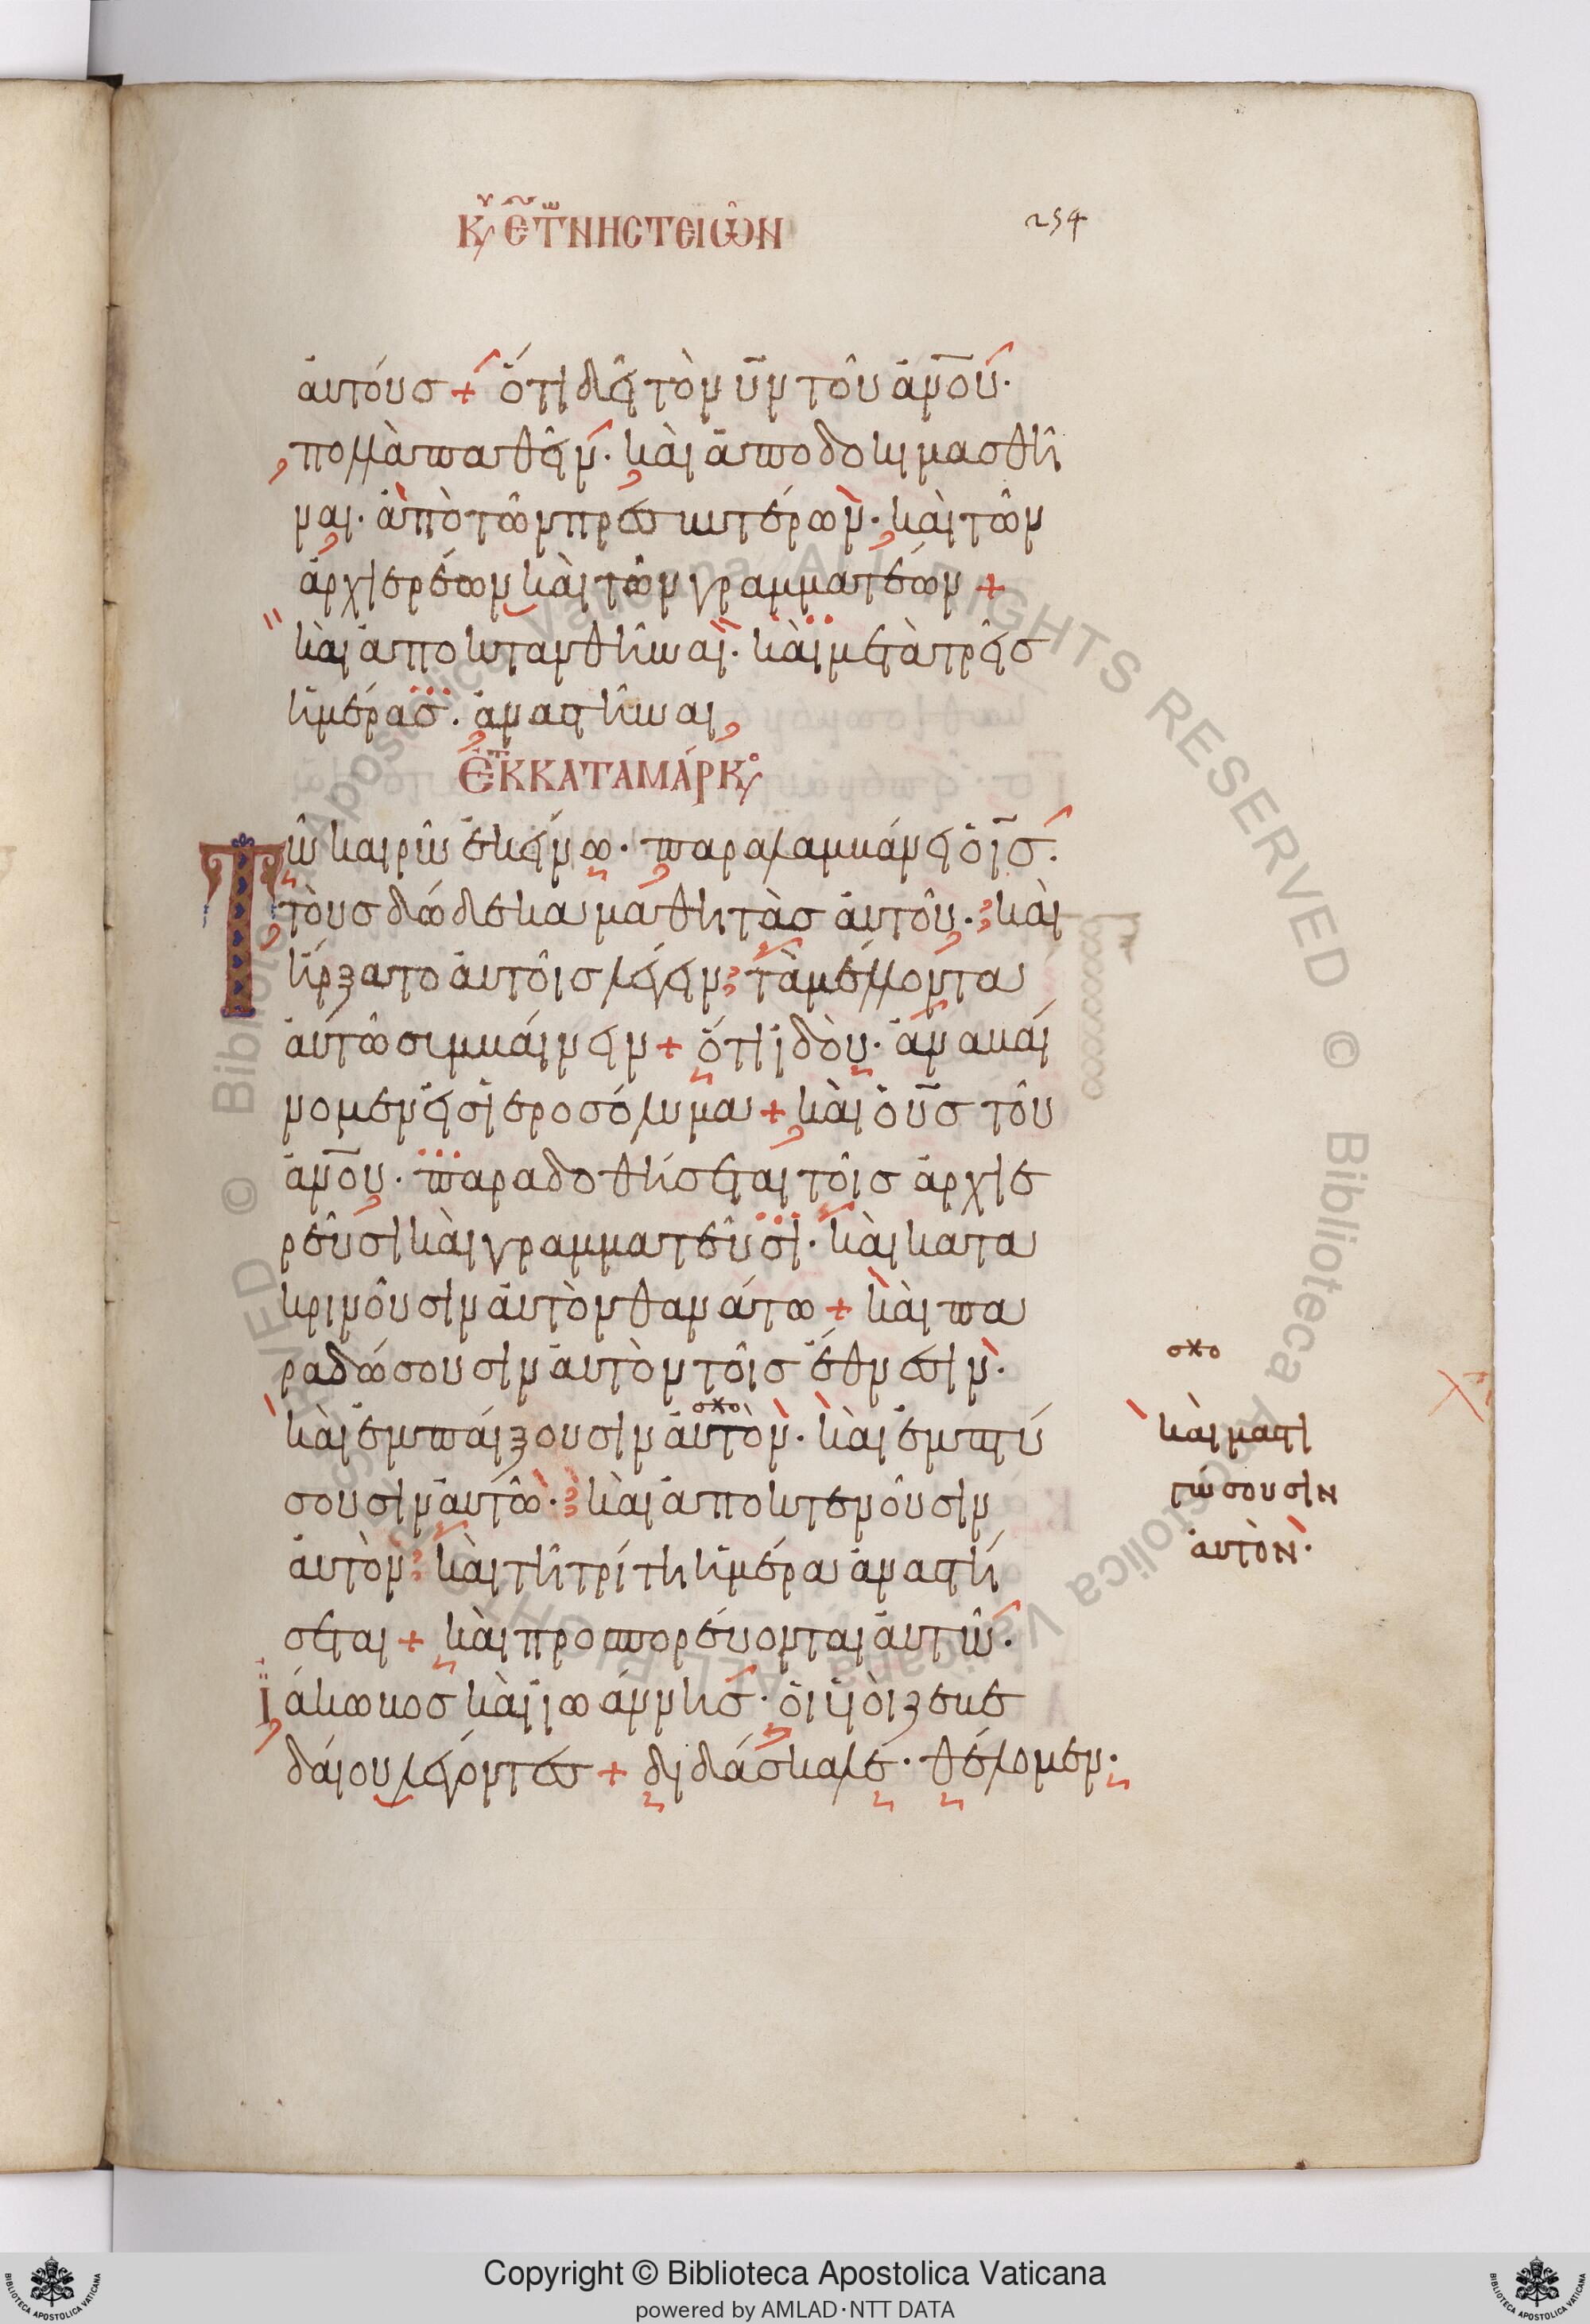 Κυ ε τω νηστειῶν
254
ἀυτούσ + ὅτι δεῖ τὸν υ̅ν τοῦ ἀν̅ου·
πολλὰ παθεῖν· κὰι ἀποδοκιμασθῆ
ναι· ἀπὸ τῶν πρεσβυτέρων· κὰι τῶν
ἀρχιερέων κὰι τῶν γραμματέων +
κὰι ἀποκτανθῆναι· κὰι μετὰ τρεῖσ
ἡμέρασ· ἀναστῆναι
ἐκ τ κατα μάρκο
Τῶ καιρῶ ἐκείνω· παραλαμβάνει ὁ ι̅σ·
τοὺσ δώδεκα μαθητὰσ ἀυτοῦ· κὰι
ἤρξατο ἀυτοῖσ λέγειν τὰ μέλλοντα
ἀυτῶ συμβάινειν + ὅτι ἰδοὺ· ἀναβάι
νομεν εἰσ ἱεροσόλυμα + κὰι ὁ υ̅σ τοῦ
ἀν̅ου· παραδοθήσεται τοῖσ ἀρχιε
ρεῦσι κὰι γραμματεῦσι· κὰι κατα
κρινοῦσιν ἀυτὸν θανάτω + κὰι πα
ραδώσουσιν ἀυτὸν τοῖσ ἔθνεσιν·
κὰι ἐμπάιξουσιν ἀυτὸν· κὰι ἐμπτύ
σουσιν ἀυτῶ· κὰι ἀποκτενοῦσιν
ἀυτὸν κὰι τῆ τρίτη ἡμέρα ἀναστή
σεται + κὰι προπορέυονται ἀυτῶ·
ϊάκωβοσ κὰι ἰωάννησ· ὁι υἱὸι ζεβε
δάιου λέγοντεσ + διδάσκαλε· θέλομεν·
κὰι μαστι
γώσουσιν
ἀυτὸν·
Copyright © Biblioteca Apostolica Vaticana
powered by AMLAD·NTT DATA